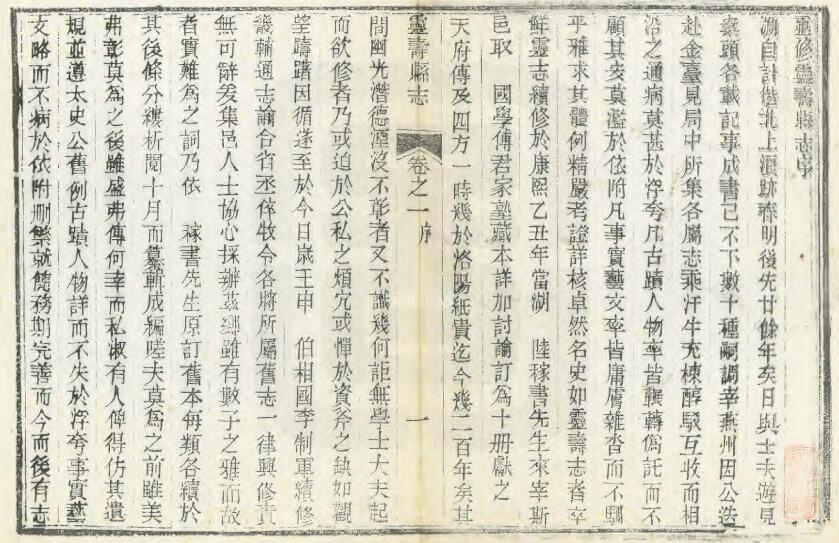 重修靈壽縣志序
湖自計偕北上浪跡春明後先廿餘年矣日與士夫遊見
案頭各載記事成書已不下數十種嗣調宰燕州因公迭
赴金臺見局中所集各屬志乘汗牛充棟醇駁互收而相
沿之通病莫甚於浮夸凡古蹟人物率皆輾轉僞託而不
顧其安莫濫於依附凡事實藝文率皆庸膚雜沓而不馴
乎雅求其體例精嚴考證詳核卓然名史如靈壽志者卒
鮮靈志續修於康熙乙丑年當湖 陸稼書先生來宰斯
邑取 國學傅君家塾藏本詳加討論訂為十册獻之
天府傳及四方一時幾於洛陽紙貴迄今幾二百年矣其
靈壽縣志 卷之一 序 一
間幽光潛德湮沒不彰者又不識幾何詎無學士大夫起
而欲修者乃或迫於公私之煩宂或憚於資斧之缺如觀
望躊躇因循遂至於今日歲壬申 伯相國李制軍續修
畿輔通志論合省丞倅牧令各將所屬舊志一律興修責
無可辭爰集邑人士協心採辦蕞鄉雖有數子之雅而故
者實難為之詞乃依 稼書先生原訂舊本每類各續於
其後條分縷析閱十月而纂輯成編陸夫莫為之前雖美
弗彰莫為之後雖盛弗傳何幸而私淑有人俾得仿其遺
規並遵太史公舊例古蹟人物詳而不失於浮夸事實藝
文略而不病於依附刪繁就簡務期完善而今而後有志